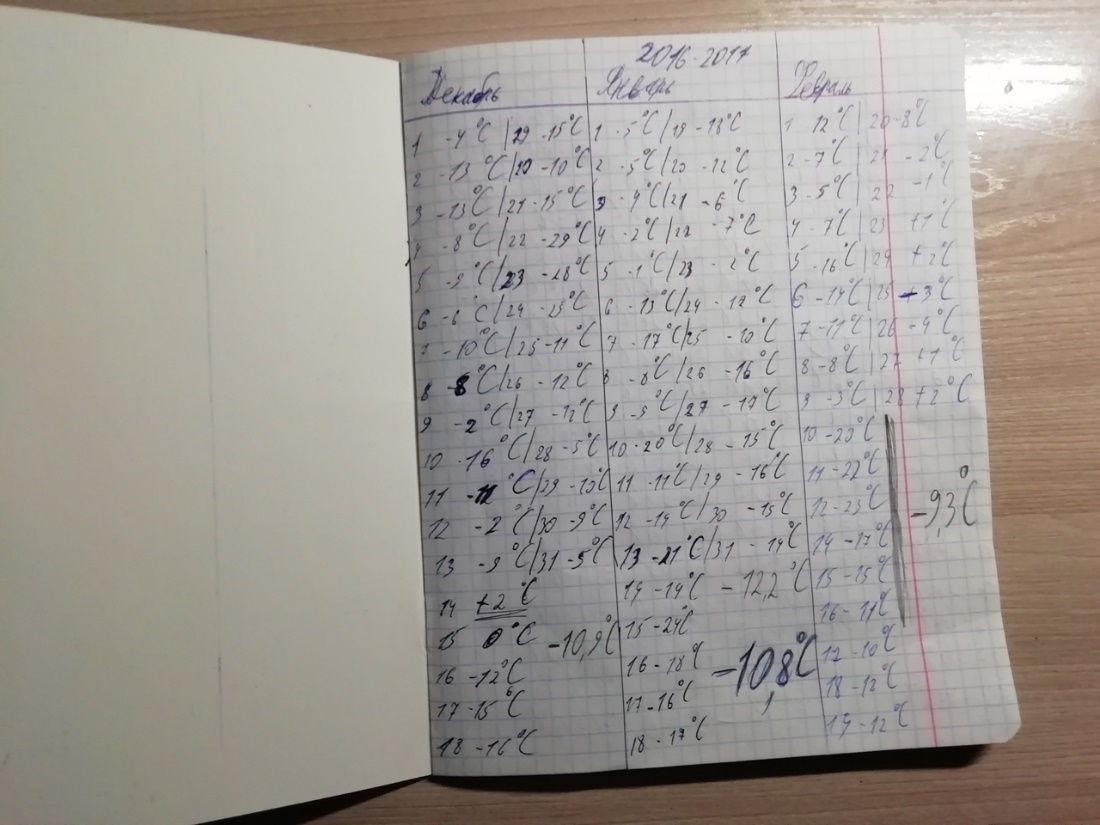 2016-2017
Декабрь Январь Февраль
1 -4°C | 19 -15°C 1 -5°C | 19 -18°C 1 12°C | 20 -8°C
2 -13°C | 20 -10°C 2 -5°C | 20 -22°C 2 -7°C | 21 -2°C
3 -13°C | 21 -15°C 3 -4°C | 21 -6°C 3 -5°C | 22 -1°C
4 -8°C | 22 -29°C 4 -2°C | 22 -7°C 4 -7°C | 23 +1°C
5 -9°C | 23 -28°C 5 -1°C | 23 -2°C 5 -16°C | 24 +2°C
6 -6°C | 24 -25°C 6 -13°C | 24 -12°C 6 -14°C | 25 +3°C
7 -10°C | 25 -11°C 7 -17°C | 25 -10°C 7 -11°C | 26 -4°C
8 -8°C | 26 -12°C 8 -8°C | 26 -16°C 8 -8°C | 27 +1°C
9 -2°C | 27 -12°C 9 -9°C | 27 -17°C 9 -3°C | 28 +2°C
10 -16°C | 28 -5°C 10 -20°C | 28 -15°C 10 -20°C
11 °C | 29 -13°C 11 -11°C | 29 -16°C 11 -22°C
12 -2°C | 30 -9°C 12 -19°C | 30 -15°C 12 -23°C -9,3°C
13 -9°C | 31 -5°C 13 -21°C | 31 -14°C 14 -17°C
14 +2°C 14 -19°C -12,2°C 15 -15°C
15 0°C -10,9°C 15 -24°C 16 -11°C
16 -12°C 16 -18°C -10,8°C 17 -10°C
17 -15°C 17 -16°C 18 -12°C
18 -16°C 18 -17°C 19 -12°C